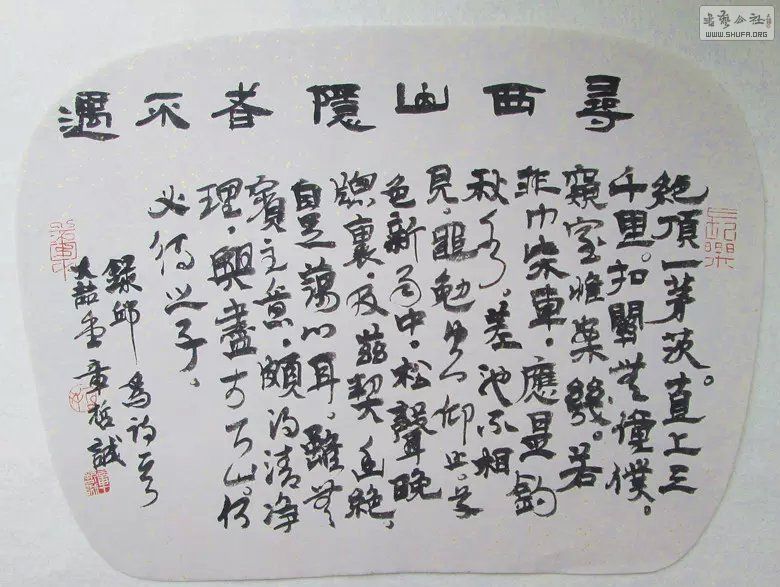 尋西山隱者不遇
絕頂一茅茨。直上三
千里。扣關無僮僕。
窺室惟案幾。若
非巾柴車，應是釣
秋水。差池不相
見，黽勉空仰止。草
色新雨中，松聲晚
牕裏，及茲契幽絕，
自足蕩心耳。雖無
賓主意，頗得清淨
理，興盡方下山。何
必待之子。
錄邱為詩一首
大喆堂章哲誠
書藝公社
WWW.SHUFA.ORG